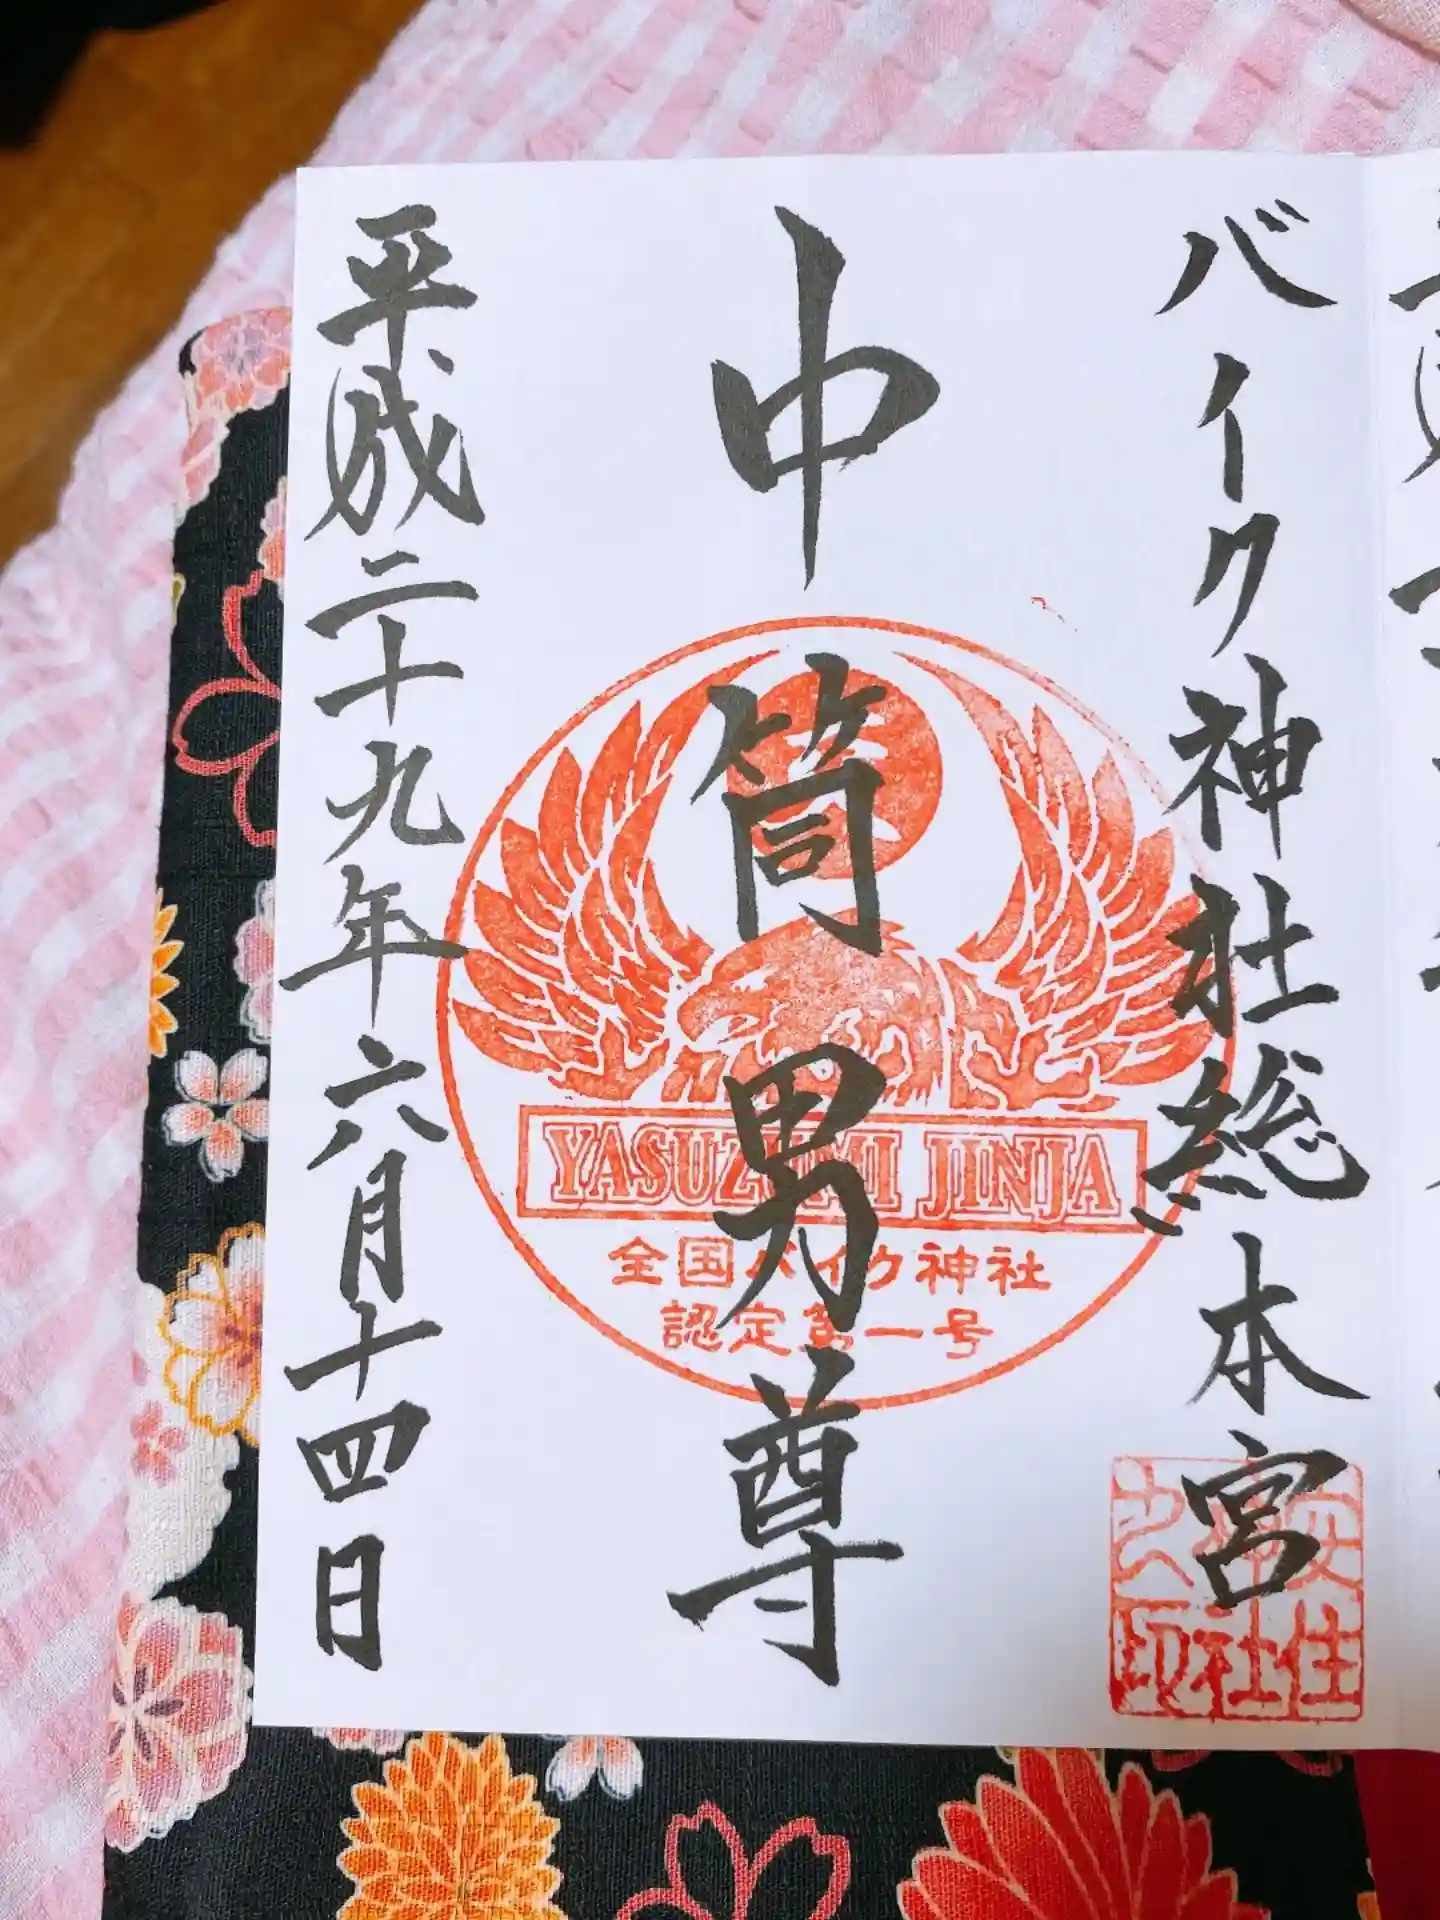 バイク神社総本宮
中筒男尊
平成二十九年六月十四日
YASUZUMI JINJA
全国バイク神社
認定第一号
安住
神社
之印